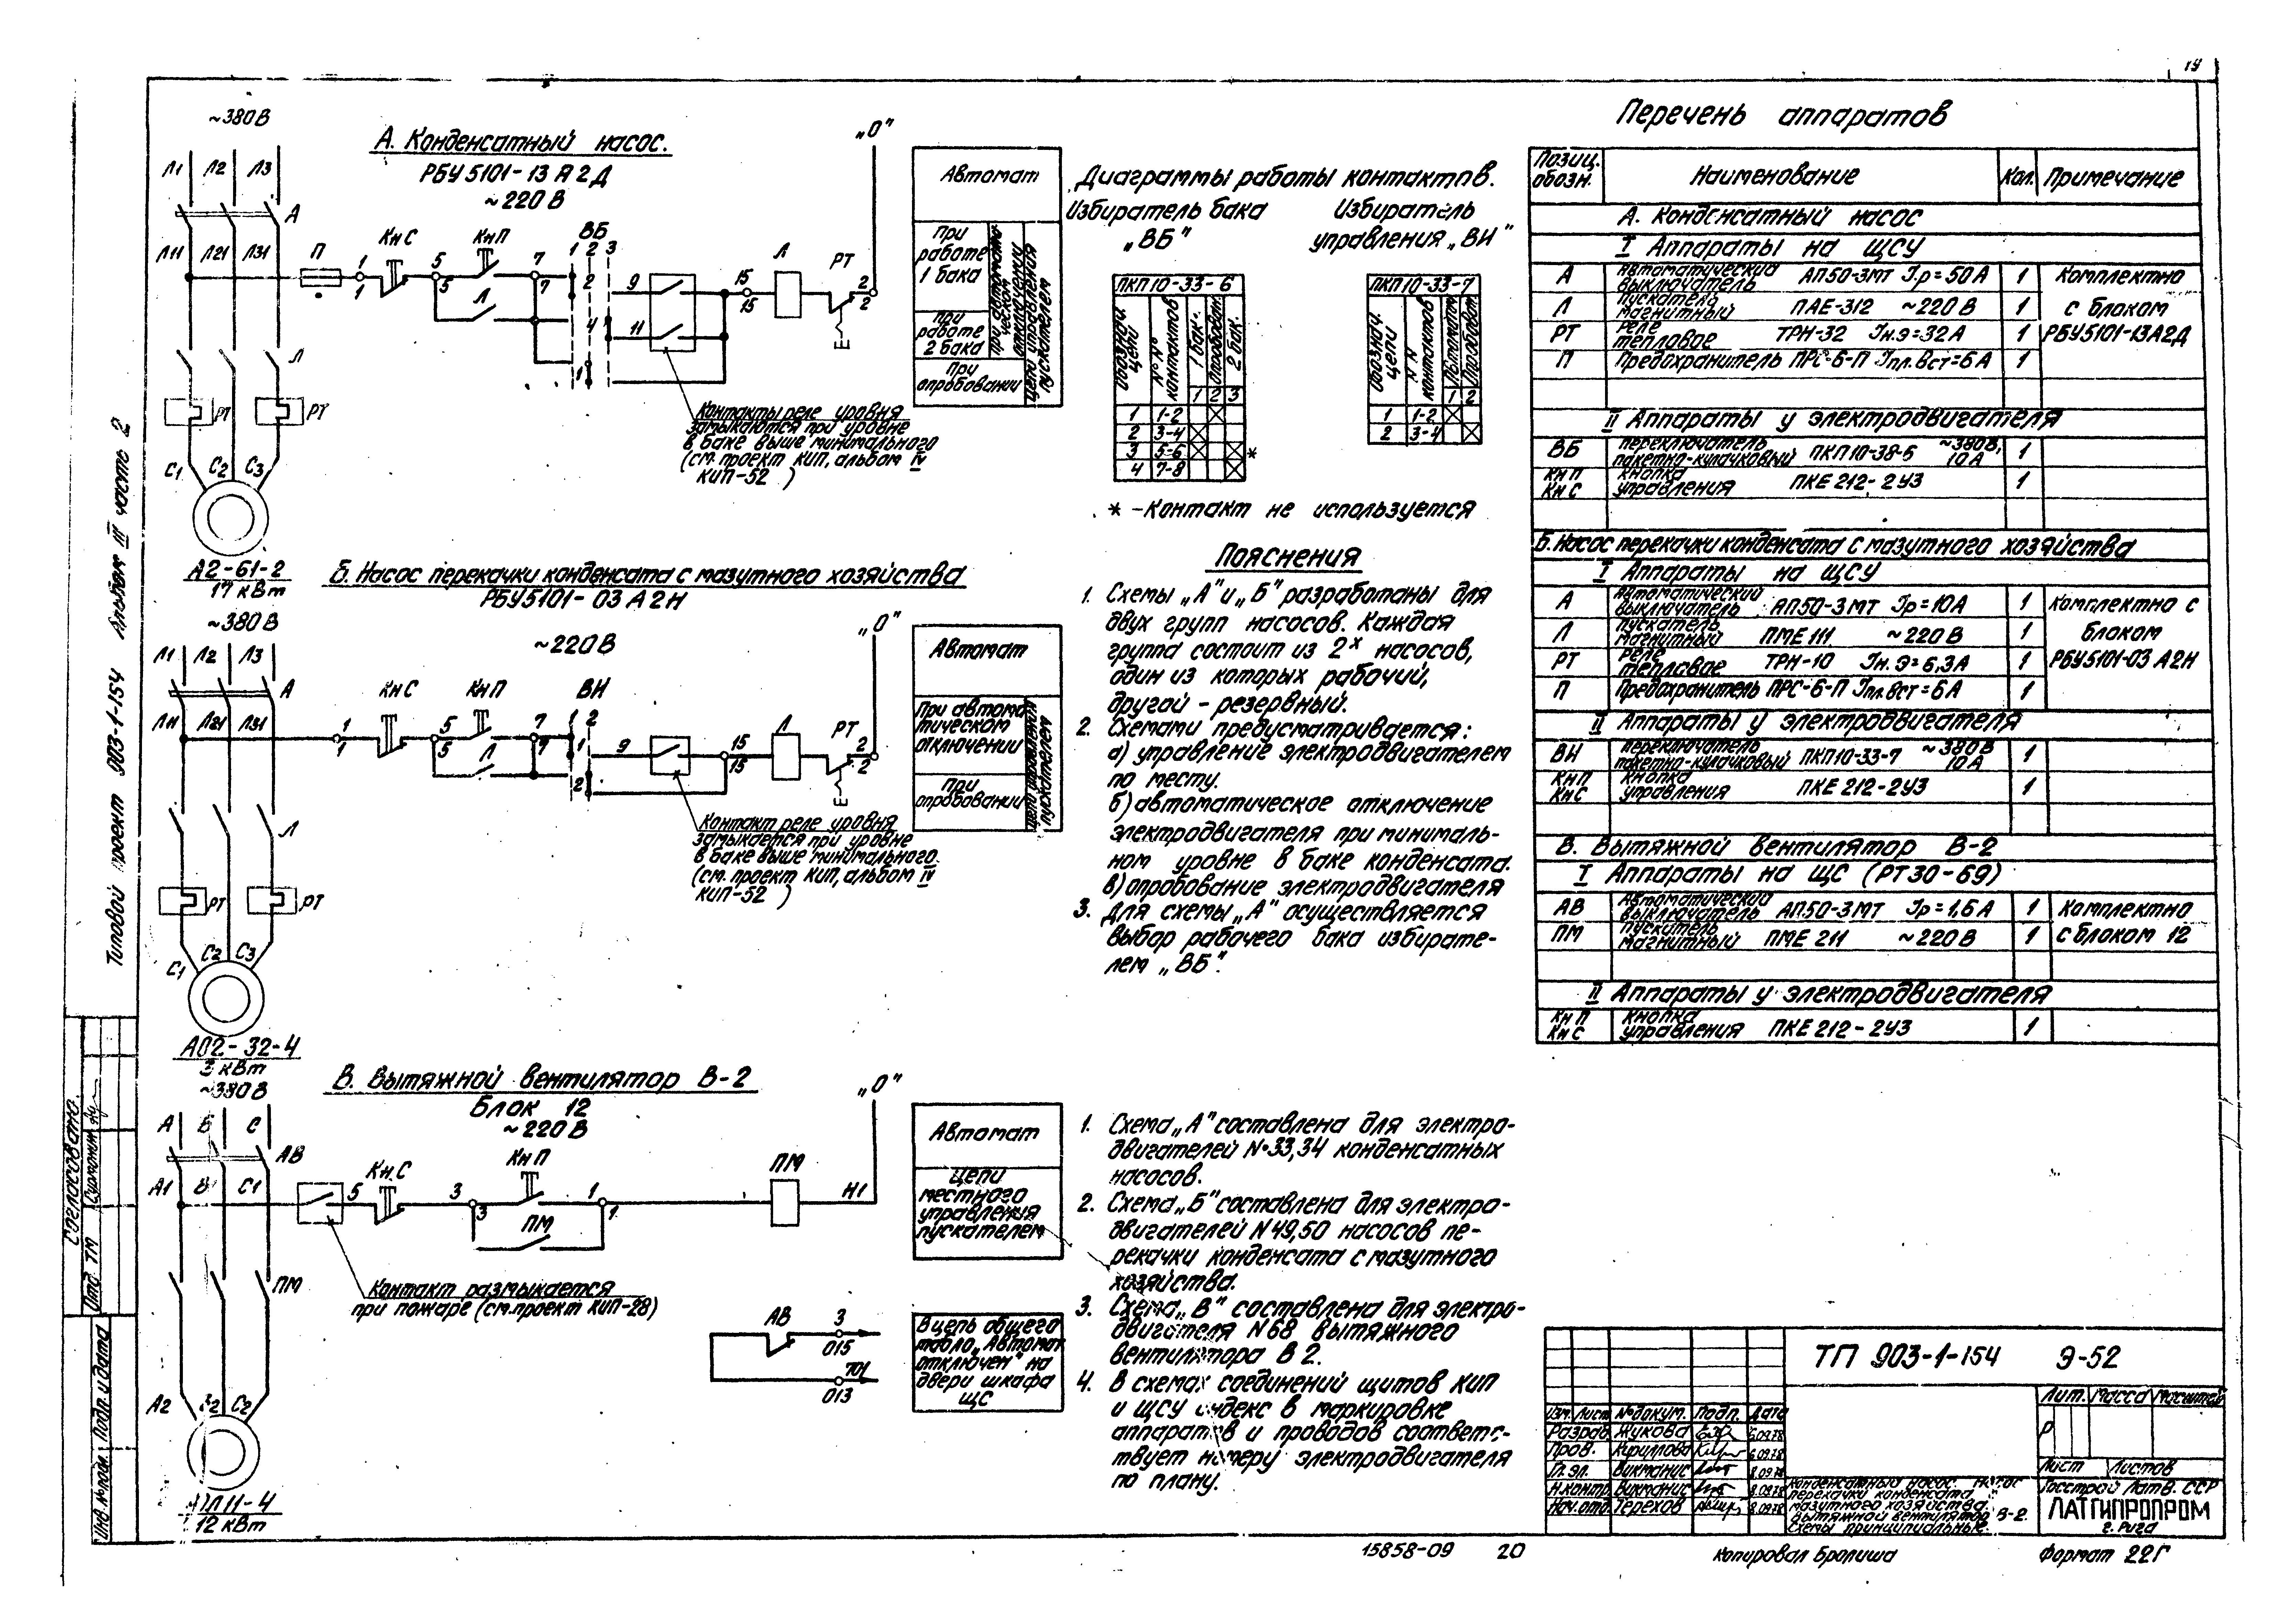 14
~380В
А. Конденсатный насос.
РБУ 5101-13 А 2 Д
~220 В
„О"
Л1 Л2 Л3
А
Л11 Л21 Л31
П
КнС
КнП
ВБ
1 2 3
Л
РТ
1 1 5 5 7 7 2 4 1 9 11 15 15 2 2
Л
Л
РТ РТ
С1 С2 С3
А2-61-2
17 кВт
Контакты реле уровня
замыкаются при уровне
в баке выше минимального
(см. проект КИП, альбом IV
КИП-52 )
Автомат
При
работе
1 бака
При
работе
2 бака
При автомати-
ческом
отключении
При
опробовании
Цепи управления
пускателем
Б. Насос перекачки конденсата с мазутного хозяйства
РБУ5101-03 А 2Н
~380 В
~220В
„О"
Л1 Л2 Л3
А
Л11 Л21 Л31
КнС
КнП
ВИ
1 2
Л
РТ
1 1 5 5 7 7 1 2 9 15 15 2 2
Л
Л
РТ РТ
С1 С2 С3
А02-32-4
3 кВт
Контакт реле уровня
замыкается при уровне
в баке выше минимального.
(см. проект КИП, альбом IV
КИП-52 )
Автомат
При автома
тическом
отключении
При
опробовании
Цепи управления
пускателем
~380 В
В. Вытяжной вентилятор В-2
Блок 12
~220 В
„О"
А В С
АВ
А1 В1 С1
5
КнС
3 3
КнП
ПМ
1 1
ПМ
Н1
ПМ
Контакт размыкается
при пожаре (см. проект КИП-28)
А2 В2 С2
12 кВт
Автомат
Цепи
местного
управления
пускателем
АВ
3
015
701
013
В цепь общего
табло „Автомат
отключен" на
двери шкафа
ЩС
Диаграммы работы контактов.
Избиратель бака
„ВБ"
Избиратель
управления „ВИ"
ПКП10-33-6
Обознач. цепи
N°N° контактов
1 бак.
Опробован.
2 бак.
1 2 3
1 1-2
2 3-4
3 5-6 *
4 7-8
ПКП10-33-7
Обознач. цепи
N N контактов
Автомат
Опробоват.
1 2
1 1-2
2 3-4
* - Контакт не используется
Пояснения
1. Схемы „А" и „Б" разработаны для
двух групп насосов. Каждая
группа состоит из 2х насосов,
один из которых рабочий,
другой - резервный.
2. Схемами предусматривается:
а) управление электродвигателем
по месту.
б) автоматическое отключение
электродвигателя при минималь-
ном уровне в баке конденсата.
в) опробование электродвигателя
3. Для схемы „А" осуществляется
выбор рабочего бака избирате-
лем „ВБ".
1. Схема „А" составлена для электро-
двигателей N° 33,34 конденсатных
насосов.
2. Схема „Б" составлена для электро-
двигателей N 49,50 насосов пе-
рекачки конденсата с мазутного
хозяйства.
3. Схема „В" составлена для электро-
двигателя N 68 вытяжного
вентилятора В 2.
4. В схемах соединений щитов КИП
и ЩСУ индекс в маркировке
аппаратов и проводов соответс-
твует номеру электродвигателя
по плану.
Перечень аппаратов
Позиц. обозн. Наименование Кол. Примечание
А. Конденсатный насос
I Аппараты на ЩСУ
А Автоматический выключатель АП50-3МТ Iр=50А 1 Комплектно
Л Пускатель магнитный ПАЕ-312 ~220 В 1 с блоком
РТ Реле тепловое ТРН-32 Iн.э=32А 1 РБУ5101-13А2Д
П Предохранитель ПРС-6-П Iпл.вст=6А 1
II Аппараты у электродвигателя
ВБ Переключатель пакетно-кулачковый ПКП10-38-6 ~380В, 10А 1
КнП КнС Кнопка управления ПКЕ 212-2У3 1
Б. Насос перекачки конденсата с мазутного хозяйства
I Аппараты на ЩСУ
А Автоматический выключатель АП50-3МТ Iр=10А 1 Комплектно с
Л Пускатель магнитный ПМЕ 111 ~220 В 1 блоком
РТ Реле тепловое ТРН-10 Iн.э=6,3А 1 РБУ5101-03 А2Н
П Предохранитель ПРС-6-П Iпл.вст=6А 1
II Аппараты у электродвигателя
ВИ Переключатель пакетно-кулачковый ПКП10-33-7 ~380В 10А 1
КнП КнС Кнопка управления ПКЕ 212-2У3 1
В. Вытяжной вентилятор В-2
I Аппараты на ЩС (РТ30-69)
АВ Автоматический выключатель АП50-3МТ Iр=1,6А 1 Комплектно
ПМ Пускатель магнитный ПМЕ 211 ~220 В 1 с блоком 12
II Аппараты у электродвигателя
КнП КнС Кнопка управления ПКЕ 212-2У3 1
ТП 903-1-154 Э-52
Лит. Масса Масштаб
Р
Лист Листов
Изм. Лист №докум. Подп. Дата
Разраб Жукова
Пров. Кириллова
Гл.эл. Викманис
Н.контр. Викманис
Нач.отд. Терехов
Конденсатный насос. Насос
перекачки конденсата
мазутного хозяйства
Вытяжной вентилятор В-2.
Схемы принципиальные.
Госстрой Латв. ССР
ЛАТГИПРОПРОМ
г. Рига
15858-09 20
Копировал Бролиша
Формат 22Г
Типовой проект 903-1-154 Альбом III часть 2
Согласовано.
Отд. ТМ
Инв.№подл. Подп. и дата